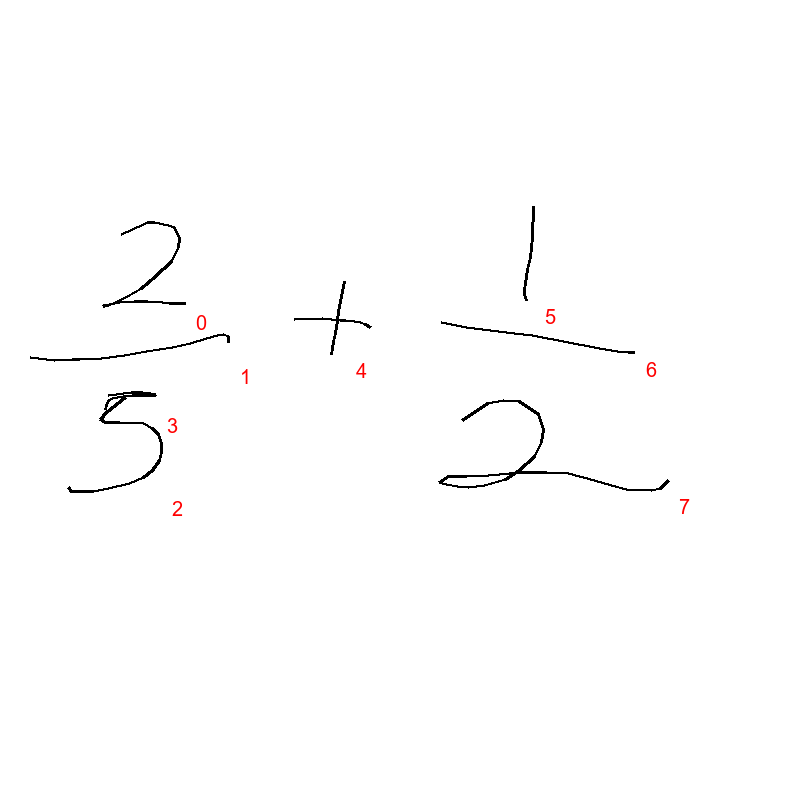 2 + 1
5 2
0 1 3 2 4 5 6 7